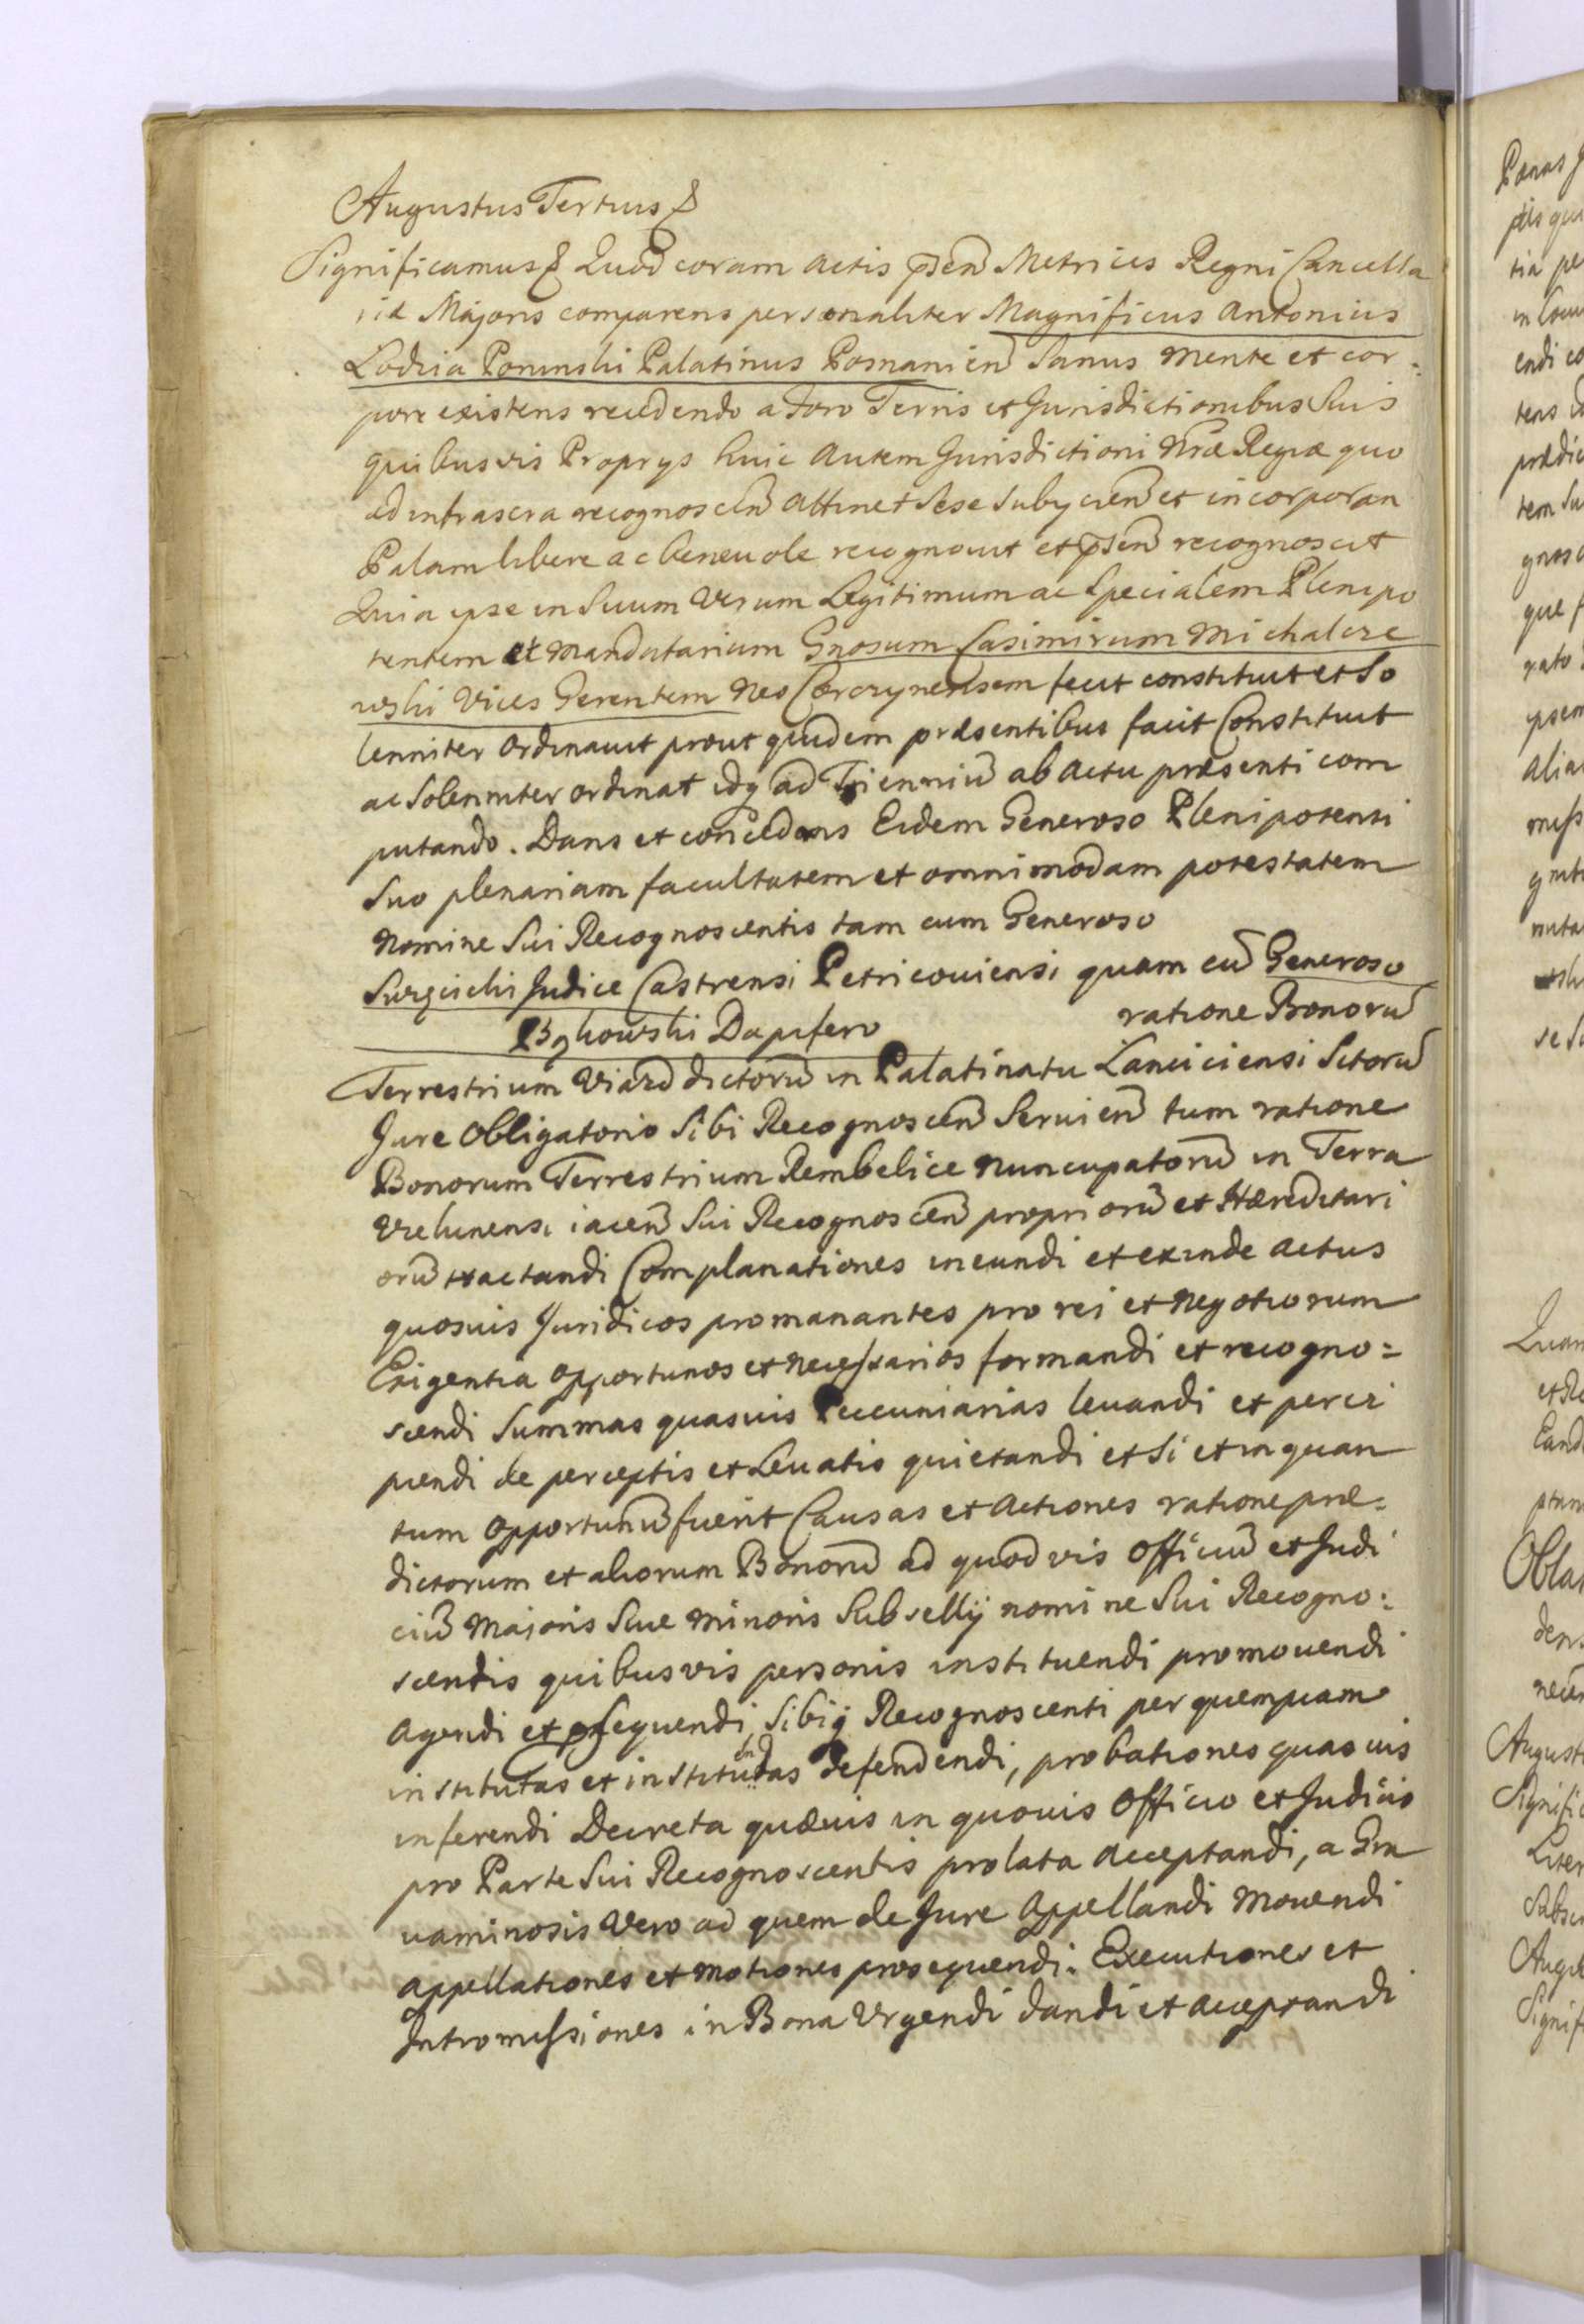 Augustus Tertius &
Significamus & Quod coram Actis psen Metrices Regni Cancella
riæ Majoris comparens personaliter Magnificus Antonius
Lodzia Poninski Palatinus Posnanien Sanus mente et cor:
pore existens recedendo a foro Terris et Jurisdictionibus Suis
quibusvis Proprys huic autem Jurisdictioni Nræ Regiæ quo
ad infrascra recognoscen attinet Sese Subycien et incorporan
Palam libere ac beneuole recognouit et psen recognoscit
Quia ipse in Suum Verum Legitimum ac Specialem Plenipo
tentem et Mandatarium Gnosum Casimirum Michalcze
wski Vices Gerentem Neo Corczynensem fecit constituit et So
lenniter Ordinauit prout quidem præsentibus facit Constituit
ac Solenniter ordinat idq ad Trienniu ab actu præsenti com
putando. Dans et concedens Eidem Generoso Plenipotenti
Suo plenariam facultatem et omnimodam potestatem
Nomine Sui Recognoscentis tam cum Generoso
Judice Castrensi Petricouiensi quam cu Generoso
Bykowski Dapifero ratione Bonoru
Terrestrium dictoru in Palatinatu Lanciciensi Sitoru
Jure Obligatorio Sibi Recognoscen Seruien tum ratione
Bonorum Terrestrium Rembelice nuncupatoru in Terra
Vielunensi iacen Sui Recognoscen proprioru et Hæreditari
oru tractandi Complanationes ineundi et exinde actus
quosuis Juridicos promanantes pro rei et Negotiorum
Exigentia opportunos et necessarios formandi et recogno=
scendi Summas quasuis Pecuniarias leuandi et perci
piendi de perceptis et Leuatis quietandi et Si et in quan
tum Opportunu fuerit Causas et Actiones ratione præ=
dictorum et aliorum Bonoru ad quod vis Officiu et Judi
ciu Majoris Siue Minoris Subsellij nomine Sui Recogno:
scentis quibusvis personis instituendi promouendi
Agendi et psequendi, Sibiq Recognoscenti per quempiam
institutas et instituendas defendendi, probationes quasuis
inferendi Decreta quæuis in quouis Officio et Judicio
pro Parte Sui Recognoscentis prolata acceptandi, a Gra
uaminosis Vero ad quem de Jure Appellandi Mouendi
Appellationes et Motiones prosequendi. Executiones et
Intromissiones in Bona Urgendi dandi et acceptandi